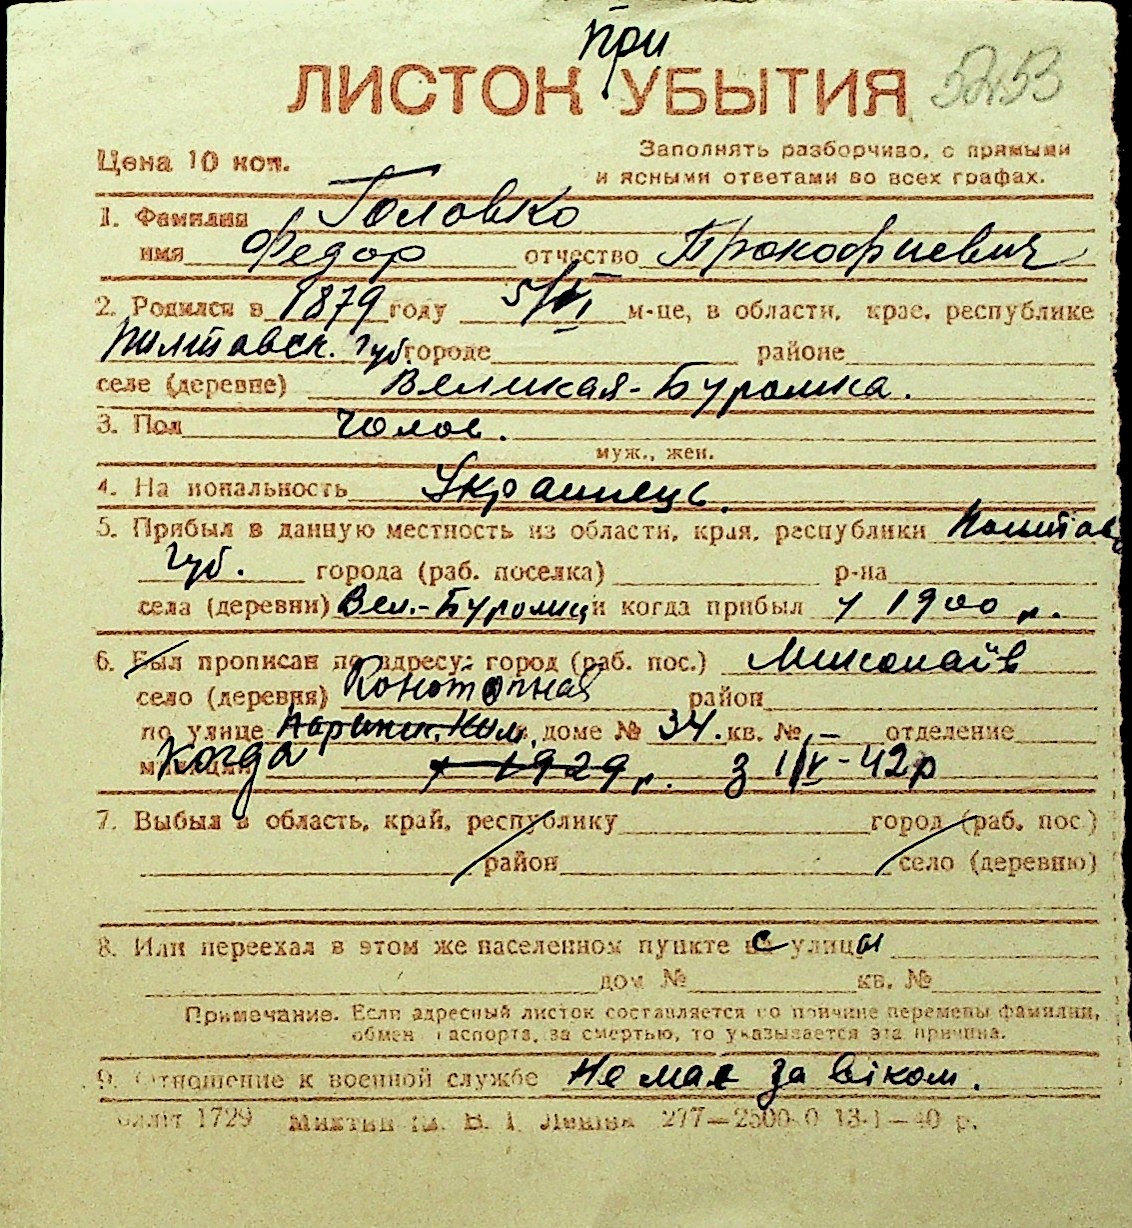 при
ЛИСТОК УБЫТИЯ 5253
Цена 10 коп.
Заполнять разборчиво, с прямыми
и ясными ответами во всех графах.
1. Фамилия Головко
имя Федор отчество Прокофиевич
2. Родился в 1879 году 5/VI м-це, в области, крае, республике
Полтавск. губ. городе районе
селе (деревне) Великая-Буромка.
3. Пол чолов.
муж., жен.
4. Национальность Украинець.
5. Прибыл в данную местность из области, края, республики Полтавс
губ. города (раб. поселка) р-на
села (деревни) Вел.-Буромци и когда прибыл у 1900 р.
6. Был прописан по адресу: город (раб. пос.) Миколаїв
село (деревня) Конотопная район
по улице доме № 34. кв. № – отделение
милиции Когда у 1929 р. з 1/IV-42р
7. Выбыл в область, край, республику город (раб. пос.)
район село (деревню)
8. Или переехал в этом же населенном пункте с улицы
дом № кв. №
Примечание. Если адресный листок составляется по причине перемены фамилии,
обмен паспорта, за смертью, то указывается эта причина.
9. Отношение к военной службе Не має за віком.
1729 В. І. Леніна 277—2500 0 13-1—40 р.